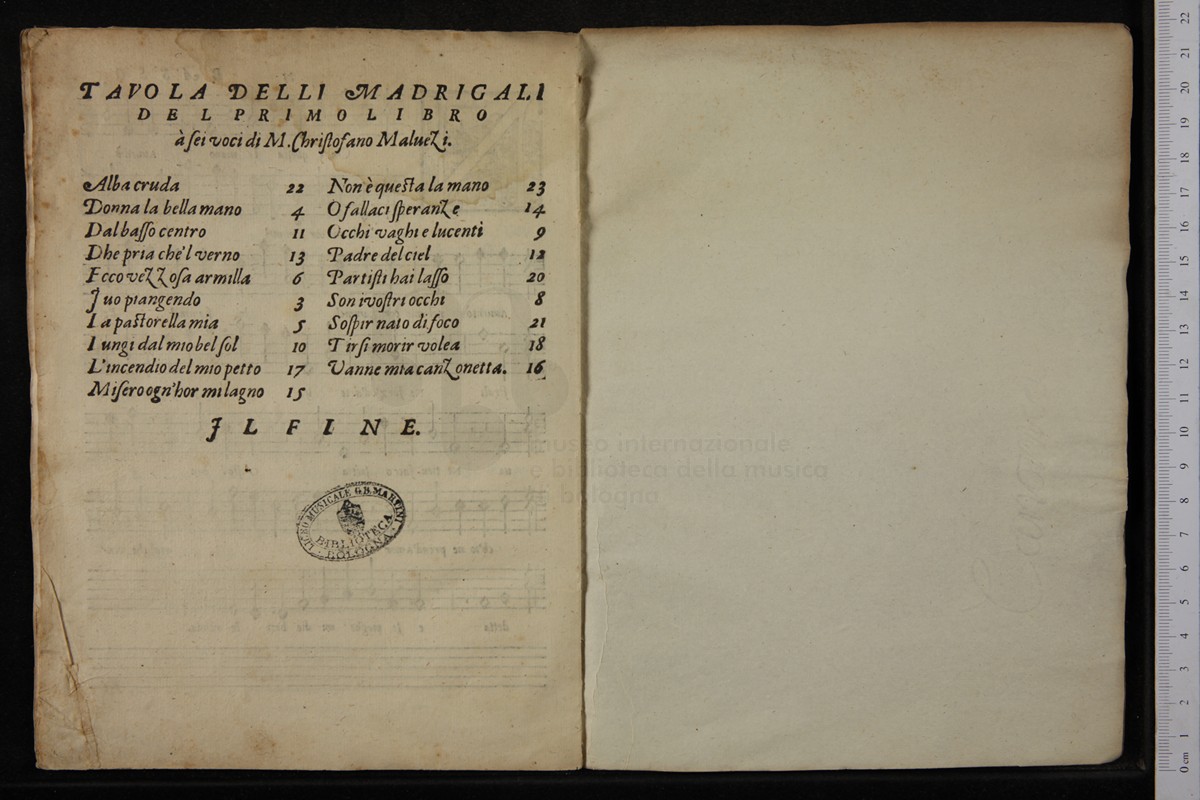 TAVOLA DELLI MADRIGALI
DEL PRIMO LIBRO
à ſei voci di M. Chriſtofano Maluezi.
Alba cruda 22
Donna la bella mano 4
Dal baſſo centro 11
Dhe pria che'l verno 13
Ecco vezzoſa armilla 6
I uo piangendo 3
La paſtorella mia 5
Lungi dal mio bel ſol 10
L'incendio del mio petto 17
Miſero ogn'hor mi lagno 15
Non è queſta la mano 23
O fallaci ſperanze 14
Occhi vaghi e lucenti 9
Padre del ciel 12
Partiſti hai laſſo 20
Son i voſtri occhi 8
Soſpir nato di foco 21
Tirſi morir volea 18
Vanne mia canzonetta. 16
IL FINE.
LICEO MUSICALE G.B. MARTINI
BIBLIOTECA
BOLOGNA
museo internazionale
e biblioteca della musica
bologna
22
21
20
19
18
17
16
15
14
13
12
11
10
9
8
7
6
5
4
3
2
1
0 cm